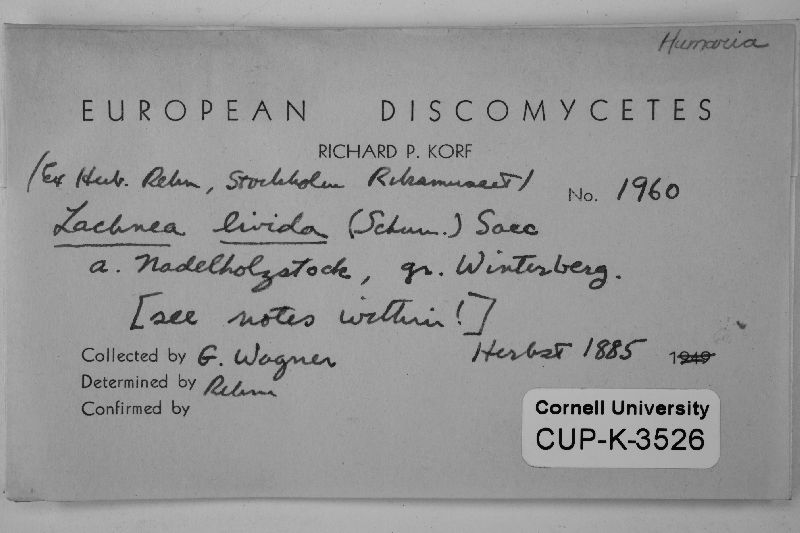 Humaria
EUROPEAN DISCOMYCETES
RICHARD P. KORF
(Ex Herb. Rehm, Stockholm Riksmuseet)
No. 1960
Lachnea livida (Schum.) Sacc
a. Nadelholzstock, gr. Winterberg.
[see notes within!]
Collected by G. Wagner Herbst 1885 1949
Determined by Rehm
Confirmed by
Cornell University
CUP-K-3526